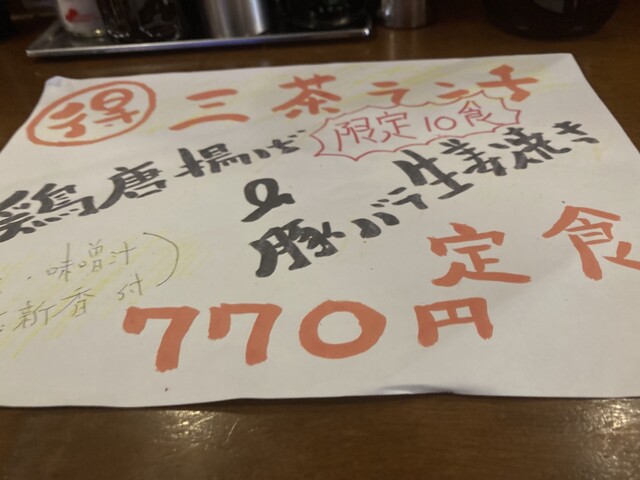 得 三茶ランチ
限定10食
鶏唐揚げ
&
豚バラ生姜焼き
定食
・味噌汁
新香付)
770円